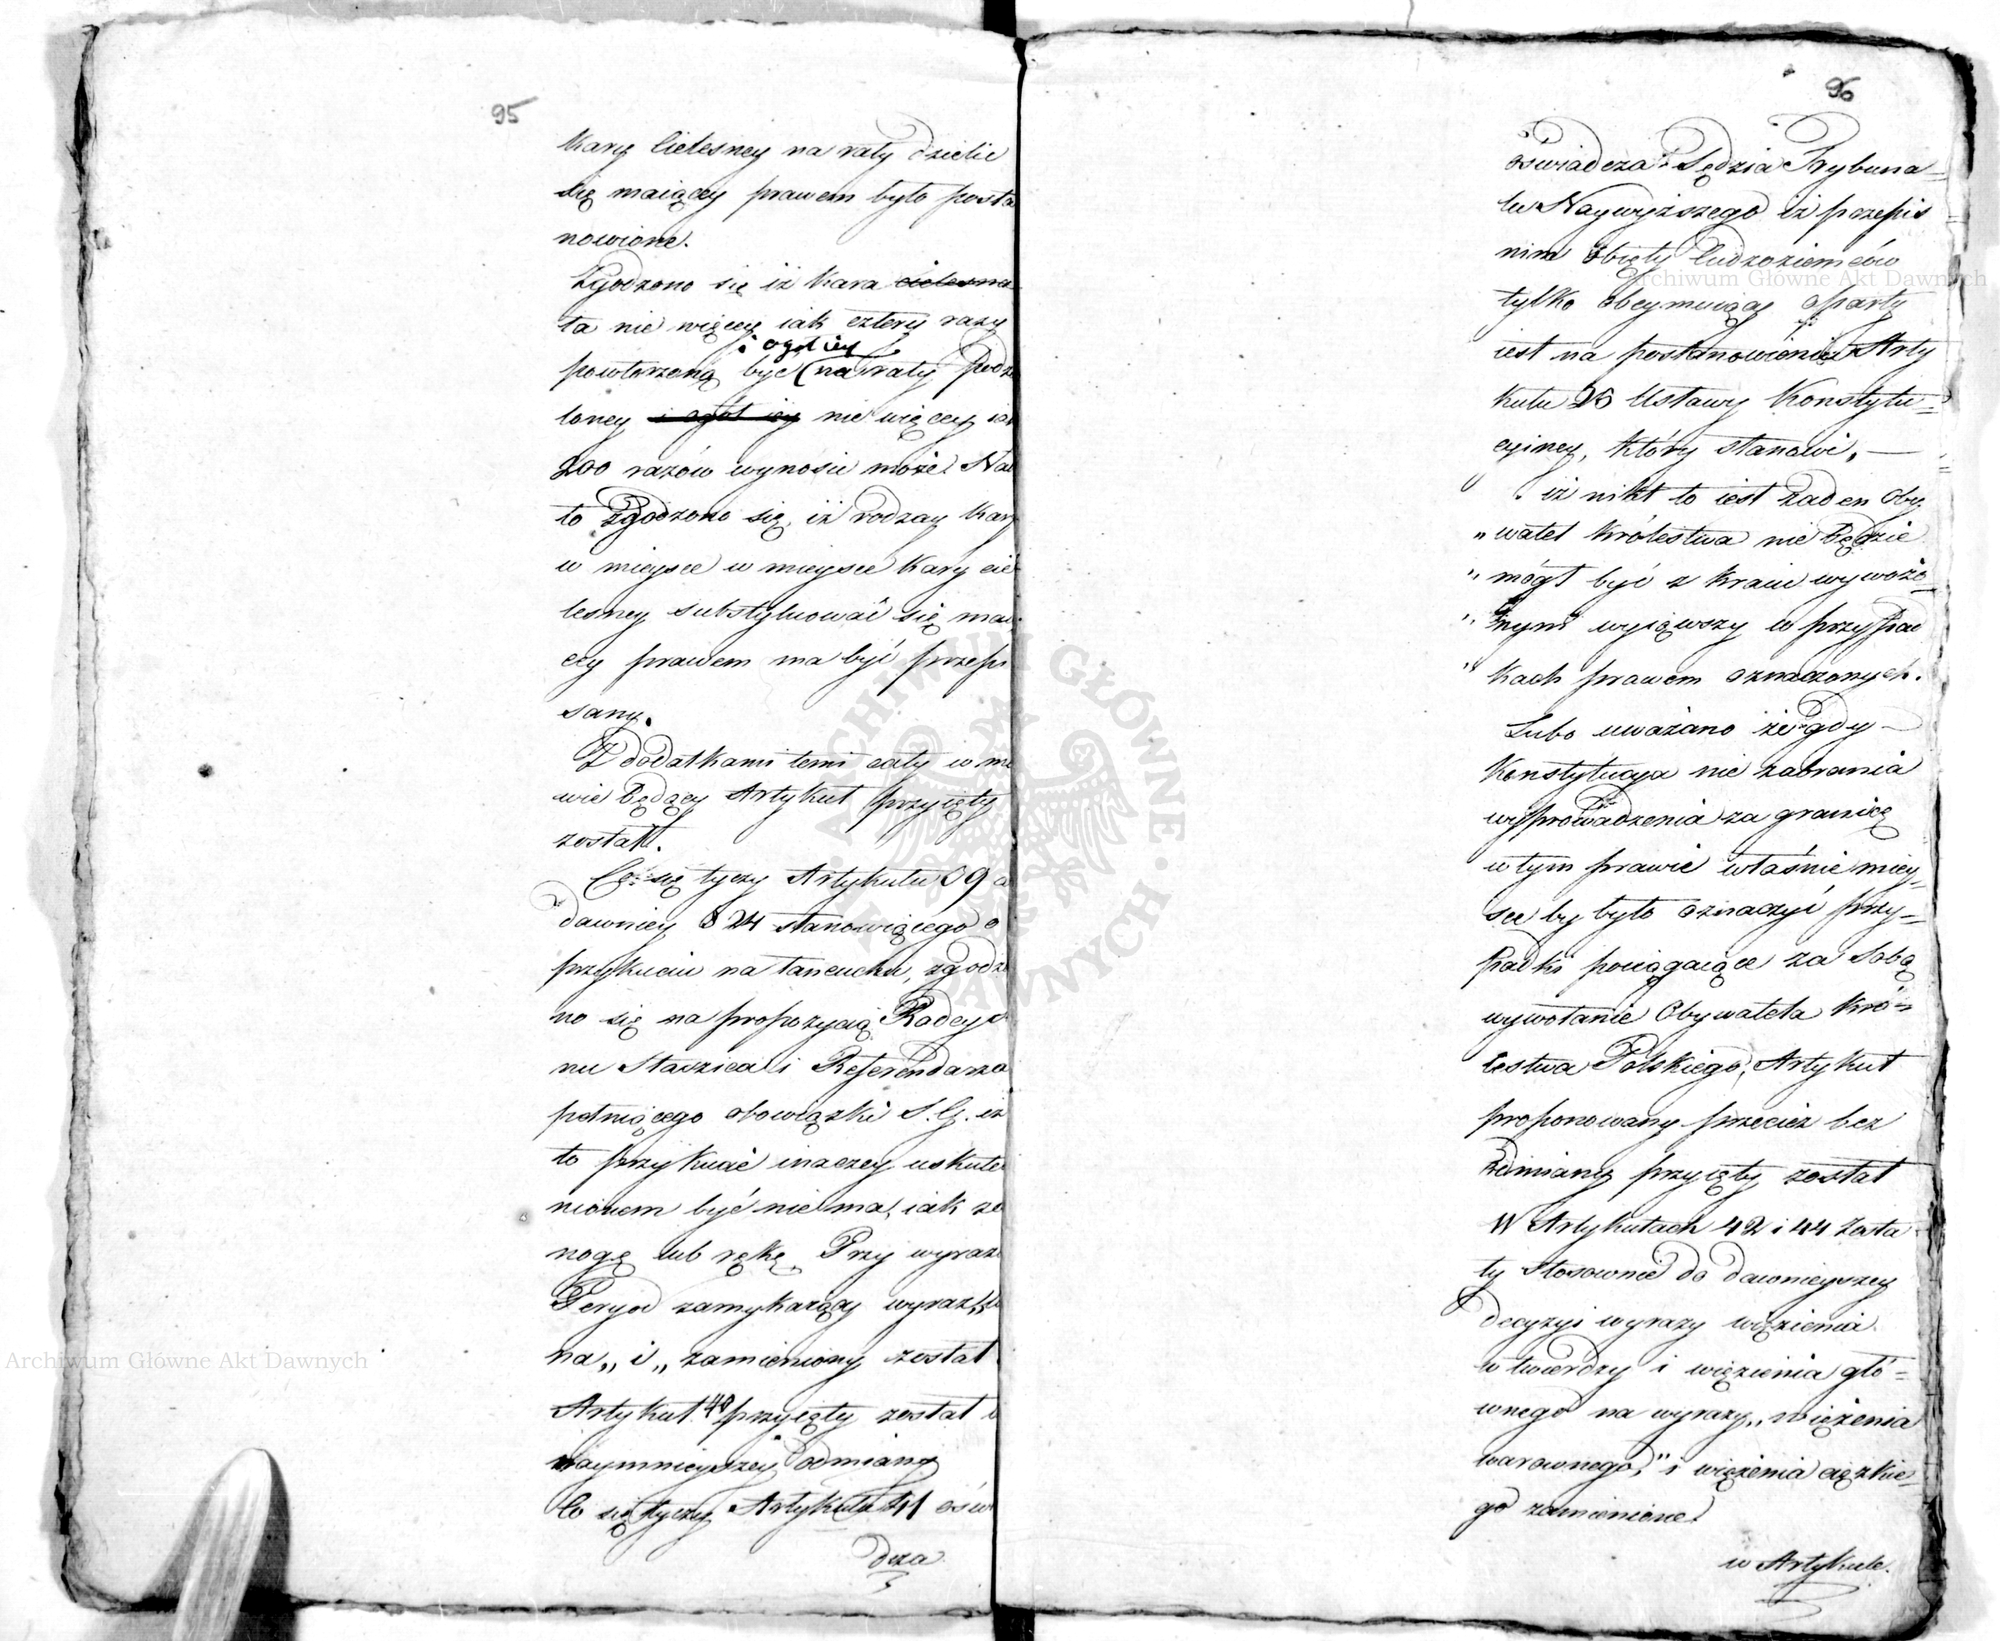 95
Kary Cielesney na raty dzielic
się maiącey prawem było posta
nowione.
Zgodzono się iż kara cielesna
ta nie więcey iak cztery razy
i ogół iey
powtorzoną być (na raty podzie
loney i ogół iey nie więcey ia
200 razów wynosić może. Nad
to Zgodzono się, iż rodzay kary
w mieysce w mieysce Kary cie
lesney substytuować się maią
cey prawem ma być przepi
sany.
Z dodatkami temi cały w mo
wie będący Artykuł przyięty
został.
Co się tyczy Artykułu 39 a
dawniey § 24 stanowiącego o
przykuciu na łańcuchu, zgodzo
no się na propozycyą Radcy
nu Staszica i Referendarza
pełniącego obowiązki S. G. iż
to przykucie inaczey uskute
nionem być nie ma, iak za
nogę lub rękę. Przy wyraz
Peryod zamykaiący wyraz
na „ i „ zamieniony został
Artykuł 40 przyięty został
naymnieyszey odmiany
Co się tyczy Artykułu 41 oświ
dcza
96
oświadcza Sędzia Trybuna=
łu Naywyższego iż przepis
nim obięty Cudzoziemców
tylko obeymuiący oparty
iest na postanowieniu Arty
kułu 25 Ustawy Konstytu=
cyiney, który stanowi, —
„ iż nikt to iest żaden Oby
„ watel Królestwa nie będzie
„ mógł być z kraiu wywożo=
„ nym wyiąwszy w przypad
„ kach prawem oznaczonych.
Lubo uważano że gdy —
Konstytucya nie zabrania
wyprowadzenia za granicę
w tym prawie właśnie miey=
sce by było oznaczyć przy=
padki pociągaiące za sobą
wywołanie Obywatela Kró=
lestwa Polskiego, Artykuł
proponowany przecież bez
Odmiany przyięty został
W Artykułach 42 i 44 Zosta
ły Stosownie do dawnieyszey
decyzyi wyrazy więzienia
w twierdzy i więzienia głó=
wnego na wyrazy „ więzienia
warownego," i więzienia ciężkie=
go zamienione.
w Artykule.
Archiwum Główne Akt Dawnych
Archiwum Główne Akt Dawnych
ARCHIWUM GŁÓWNE AKT DAWNYCH